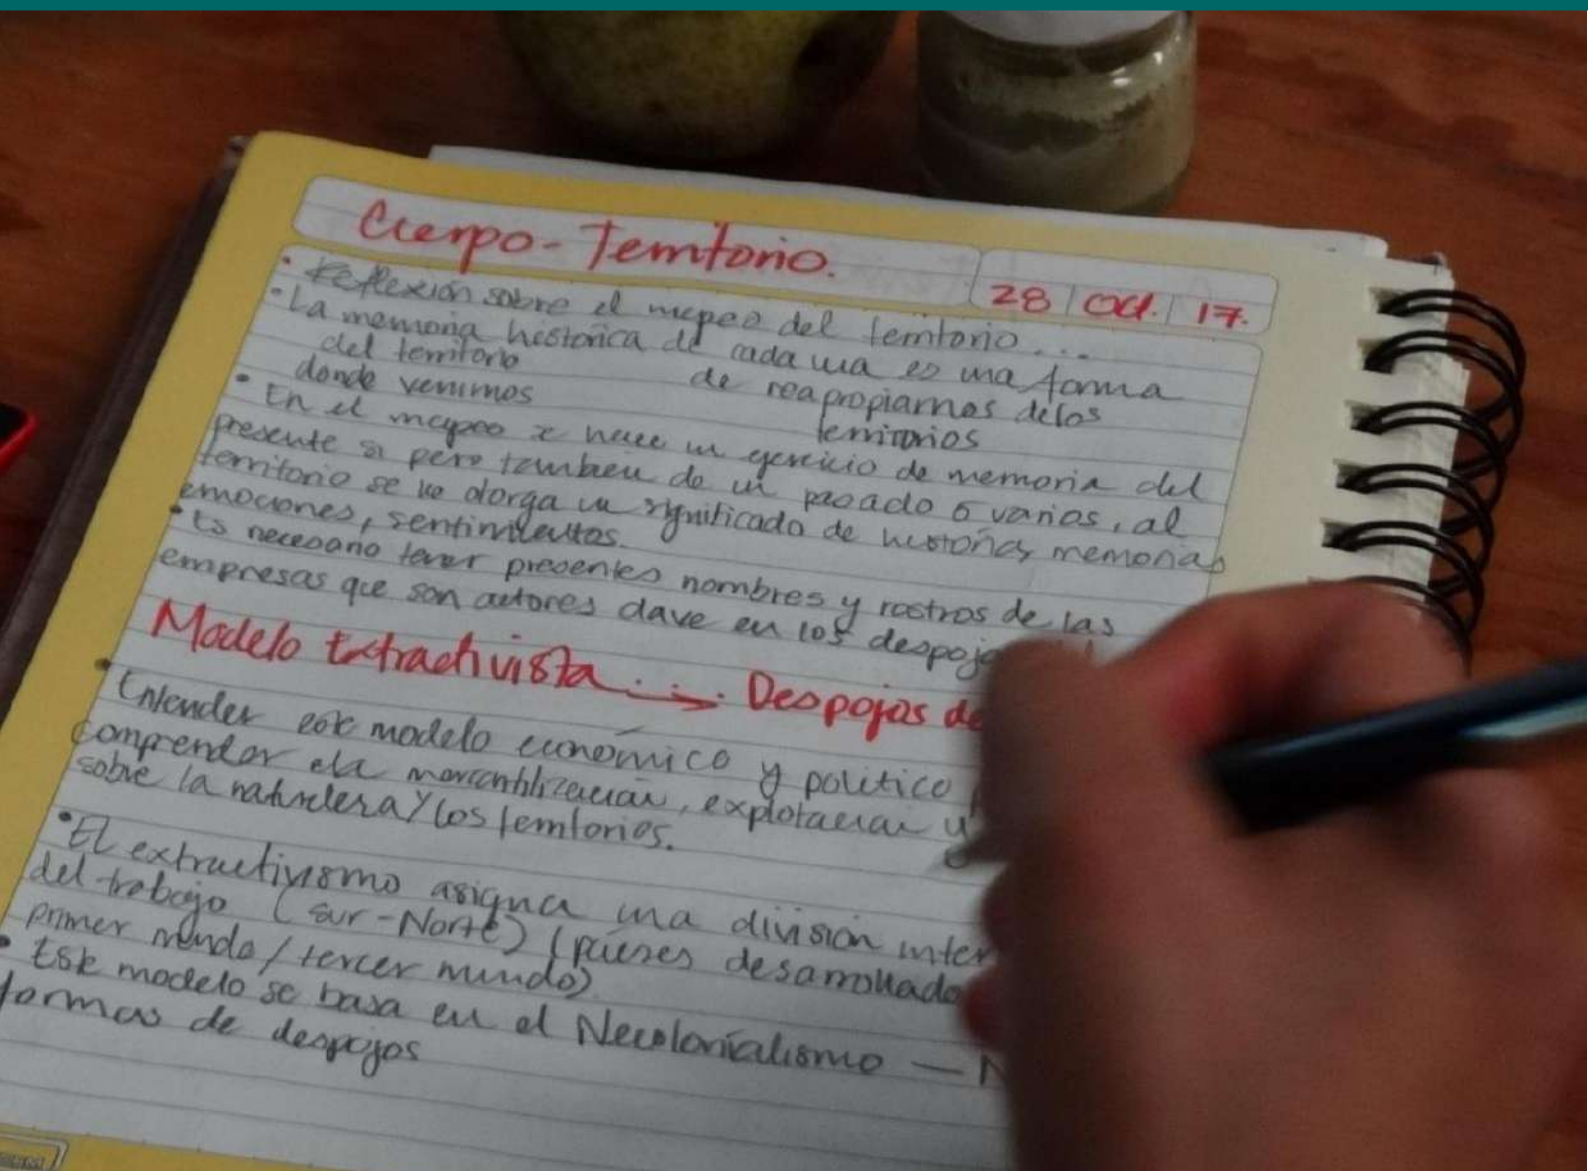 Cuerpo-Territorio.
28 Oct. 17.
• Reflexión sobre el mapeo del territorio...
• La memoria historica de cada una es una forma
del territorio de reapropiarnos de los
donde venimos territorios
• En el mapeo se hace un ejercicio de memoria del
presente si pero tambien de un pasado ó varios, al
territorio se le otorga un significado de historias, memorias
emociones, sentimientos.
• Es necesario tener presentes nombres y rostros de las
empresas que son actores clave en los despojo
Modelo Extractivista Despojos de
• Entender este modelo económico y político
comprender la mercantilización, explotación y
sobre la naturaleza y los territorios.
• El extractivismo asigna una división inter
del trabajo (Sur-Norte) (países desarrollado
primer mundo/tercer mundo)
• Este modelo se basa en el Neocolonialismo — N
formas de despojos